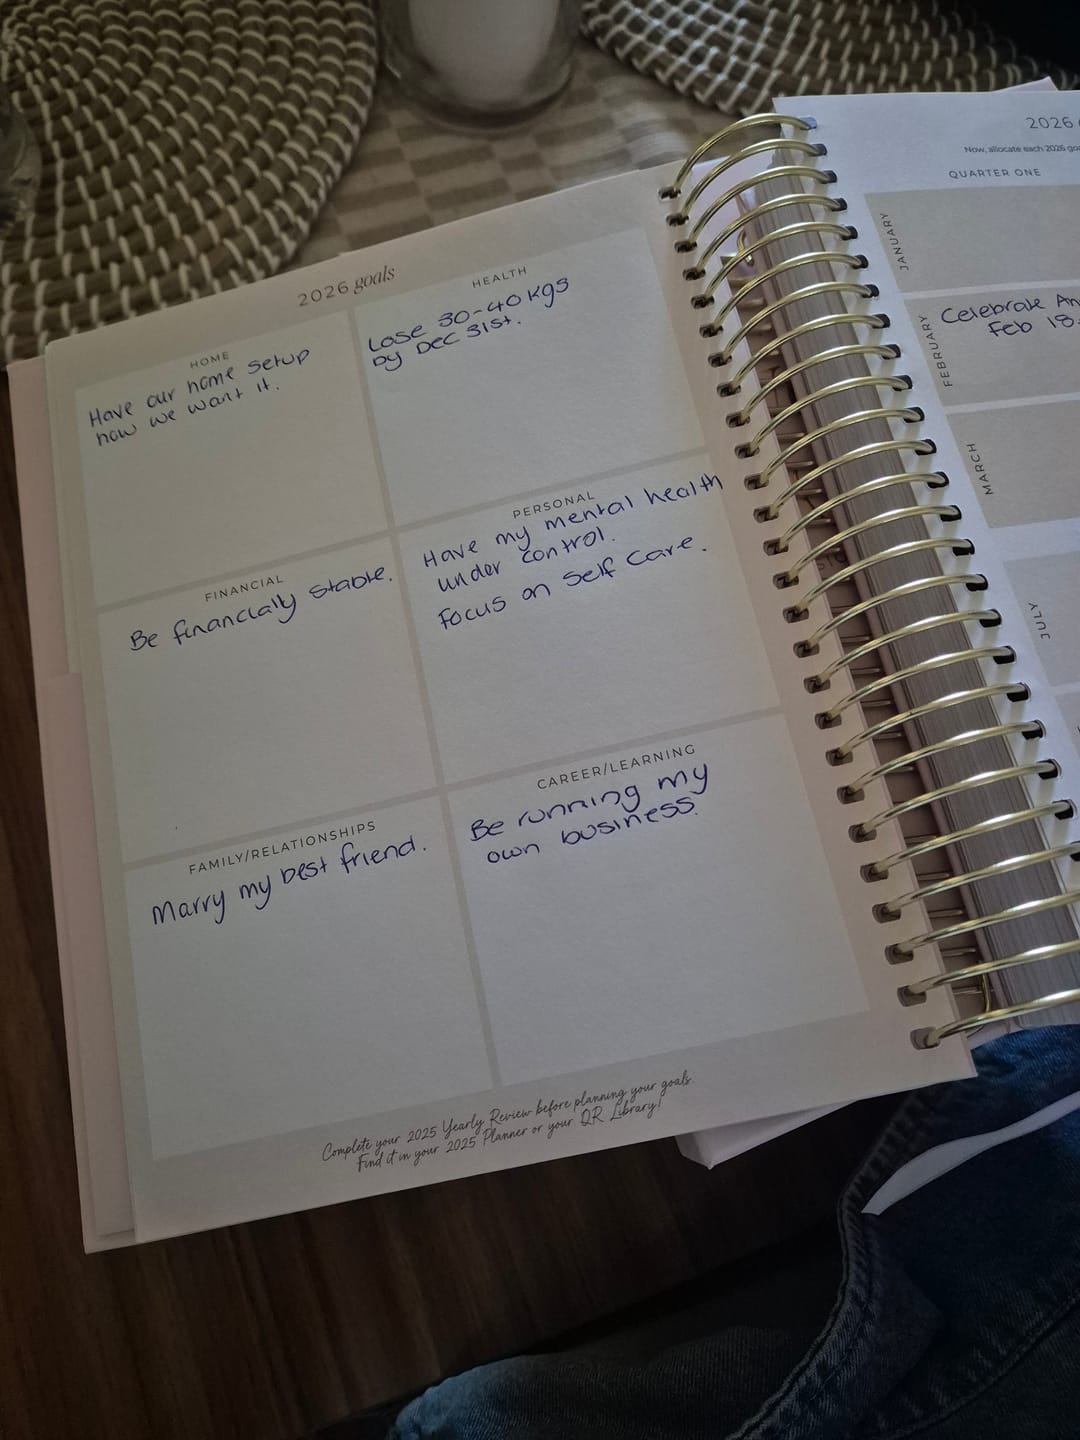 2026 goals
HOME
Have our home setup
how we want it.
HEALTH
Lose 30-40 kgs
by Dec 31st.
FINANCIAL
Be financially stable.
PERSONAL
Have my mental health
under control.
Focus on Self Care.
FAMILY/RELATIONSHIPS
Marry my best friend.
CAREER/LEARNING
Be running my
own business.
Complete your 2025 Yearly Review before planning your goals.
Find it in your 2025 Planner or your QR Library!
2026
Now, allocate each 2026
QUARTER ONE
JANUARY
FEBRUARY
Celebrate
Feb 18
MARCH
JULY